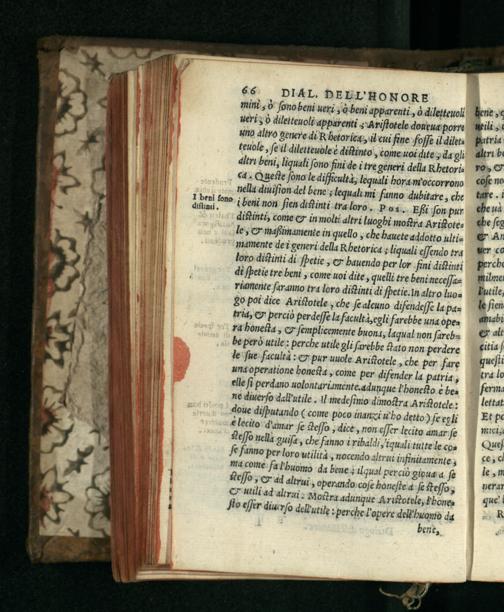 66 DIAL. DELL'HONORE
mini, ò sono beni ueri, ò beni apparenti, ò diletteuoli
ueri, ò diletteuoli apparenti, Aristotele doueua porre
uno altro genere di Rhetorica, il cui fine fosse il dilet=
teuole, se il diletteuole è distinto, come uoi dite, da gli
altri beni, liquali sono fini de i tre generi della Rhetori=
ca. Queste sono le difficultà, lequali hora m'occorrono
nella diuision del bene; lequali mi fanno dubitare, che
I beni sono distinti.
i beni non sien distinti tra loro. Pos. Essi son pur
distinti, come & in molti altri luoghi mostra Aristote=
le, & maßimamente in quello, che hauete addotto ulti=
mamente de i generi della Rhetorica; liquali essendo tra
loro distinti di spetie, & hauendo per lor fini distinti
di spetie tre beni, come uoi dite, quelli tre beni necessa=
riamente saranno tra loro distinti di spetie. In altro luo=
go poi dice Aristotele, che se alcuno difendesse la pa=
tria, & perciò perdesse la facultà, egli sarebbe una ope=
ra honesta, & semplicemente buona, laqual non sareb=
be però utile: perche utile gli sarebbe stato non perdere
le sue facultà: & pur uuole Aristotele, che per fare
una operatione honesta, come per difender la patria,
elle si perdano uolontariamente. adunque l'honesto è be=
ne diuerso dall'utile. Il medesimo dimostra Aristotele:
doue disputando (come poco inanzi u'ho detto) se egli
è lecito d'amar se stesso, dice, non esser lecito amar se
stesso nella guisa, che fanno i ribaldi, iquali tutte le co=
se fanno per loro utilità, nocendo altrui infinitamente,
ma come fa l'huomo da bene; ilqual perciò gioua a se
stesso, & ad altrui, operando cose honeste a se stesso,
& utili ad altrui. Mostra adunque Aristotele, l'hone=
sto esser diuerso dell'utile: perche l'opere dell'huomo da
bene,